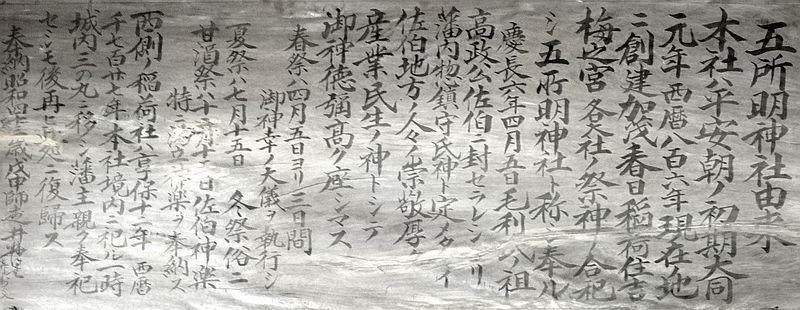 五所明神社由来
本社ハ平安朝ノ初期大同
元年西暦八百六年現在ノ地
ニ創建加茂春日稲荷住吉
梅之宮各大社ノ祭神ヲ合祀
シ五所明神社ト称シ奉ル
慶長六年四月五日毛利公ノ祖
高政公佐伯ニ封セラレシヨリ
藩内物鎮守氏神ト定メタマイ
佐伯地方ノ人々ノ崇敬厚ク
産業民生ノ神トシテ
御神徳彌高ク座シマス
春祭ハ四月五日ヨリ三日間
御神幸ノ大儀ヲ執行シ
夏祭ハ七月十五日 冬祭俗ニ
甘酒祭ハ十二月十一日佐伯神楽
特ニ 楽ヲ奉納ス
西側ノ稲荷社ハ享保十二年西暦
千七百廿七年本社境内ニ祀ル一時
城内三の丸ニ移シ藩主親ヲ奉祀
セシモ後再ヒ此処ニ復帰ス
奉納昭和四十三歳戊申師走